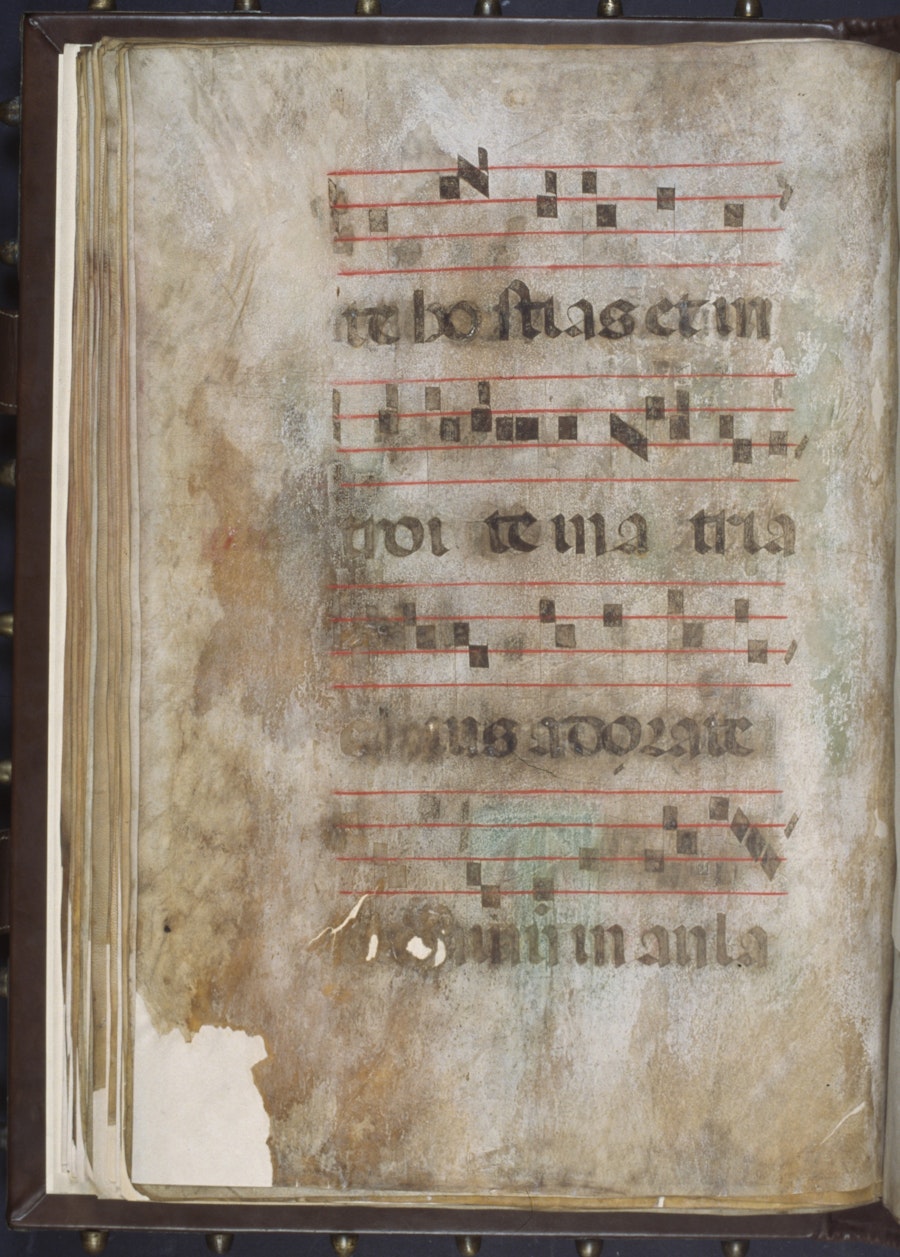 te hostias et in
troi te in a tria
eius adorate
domini in aula